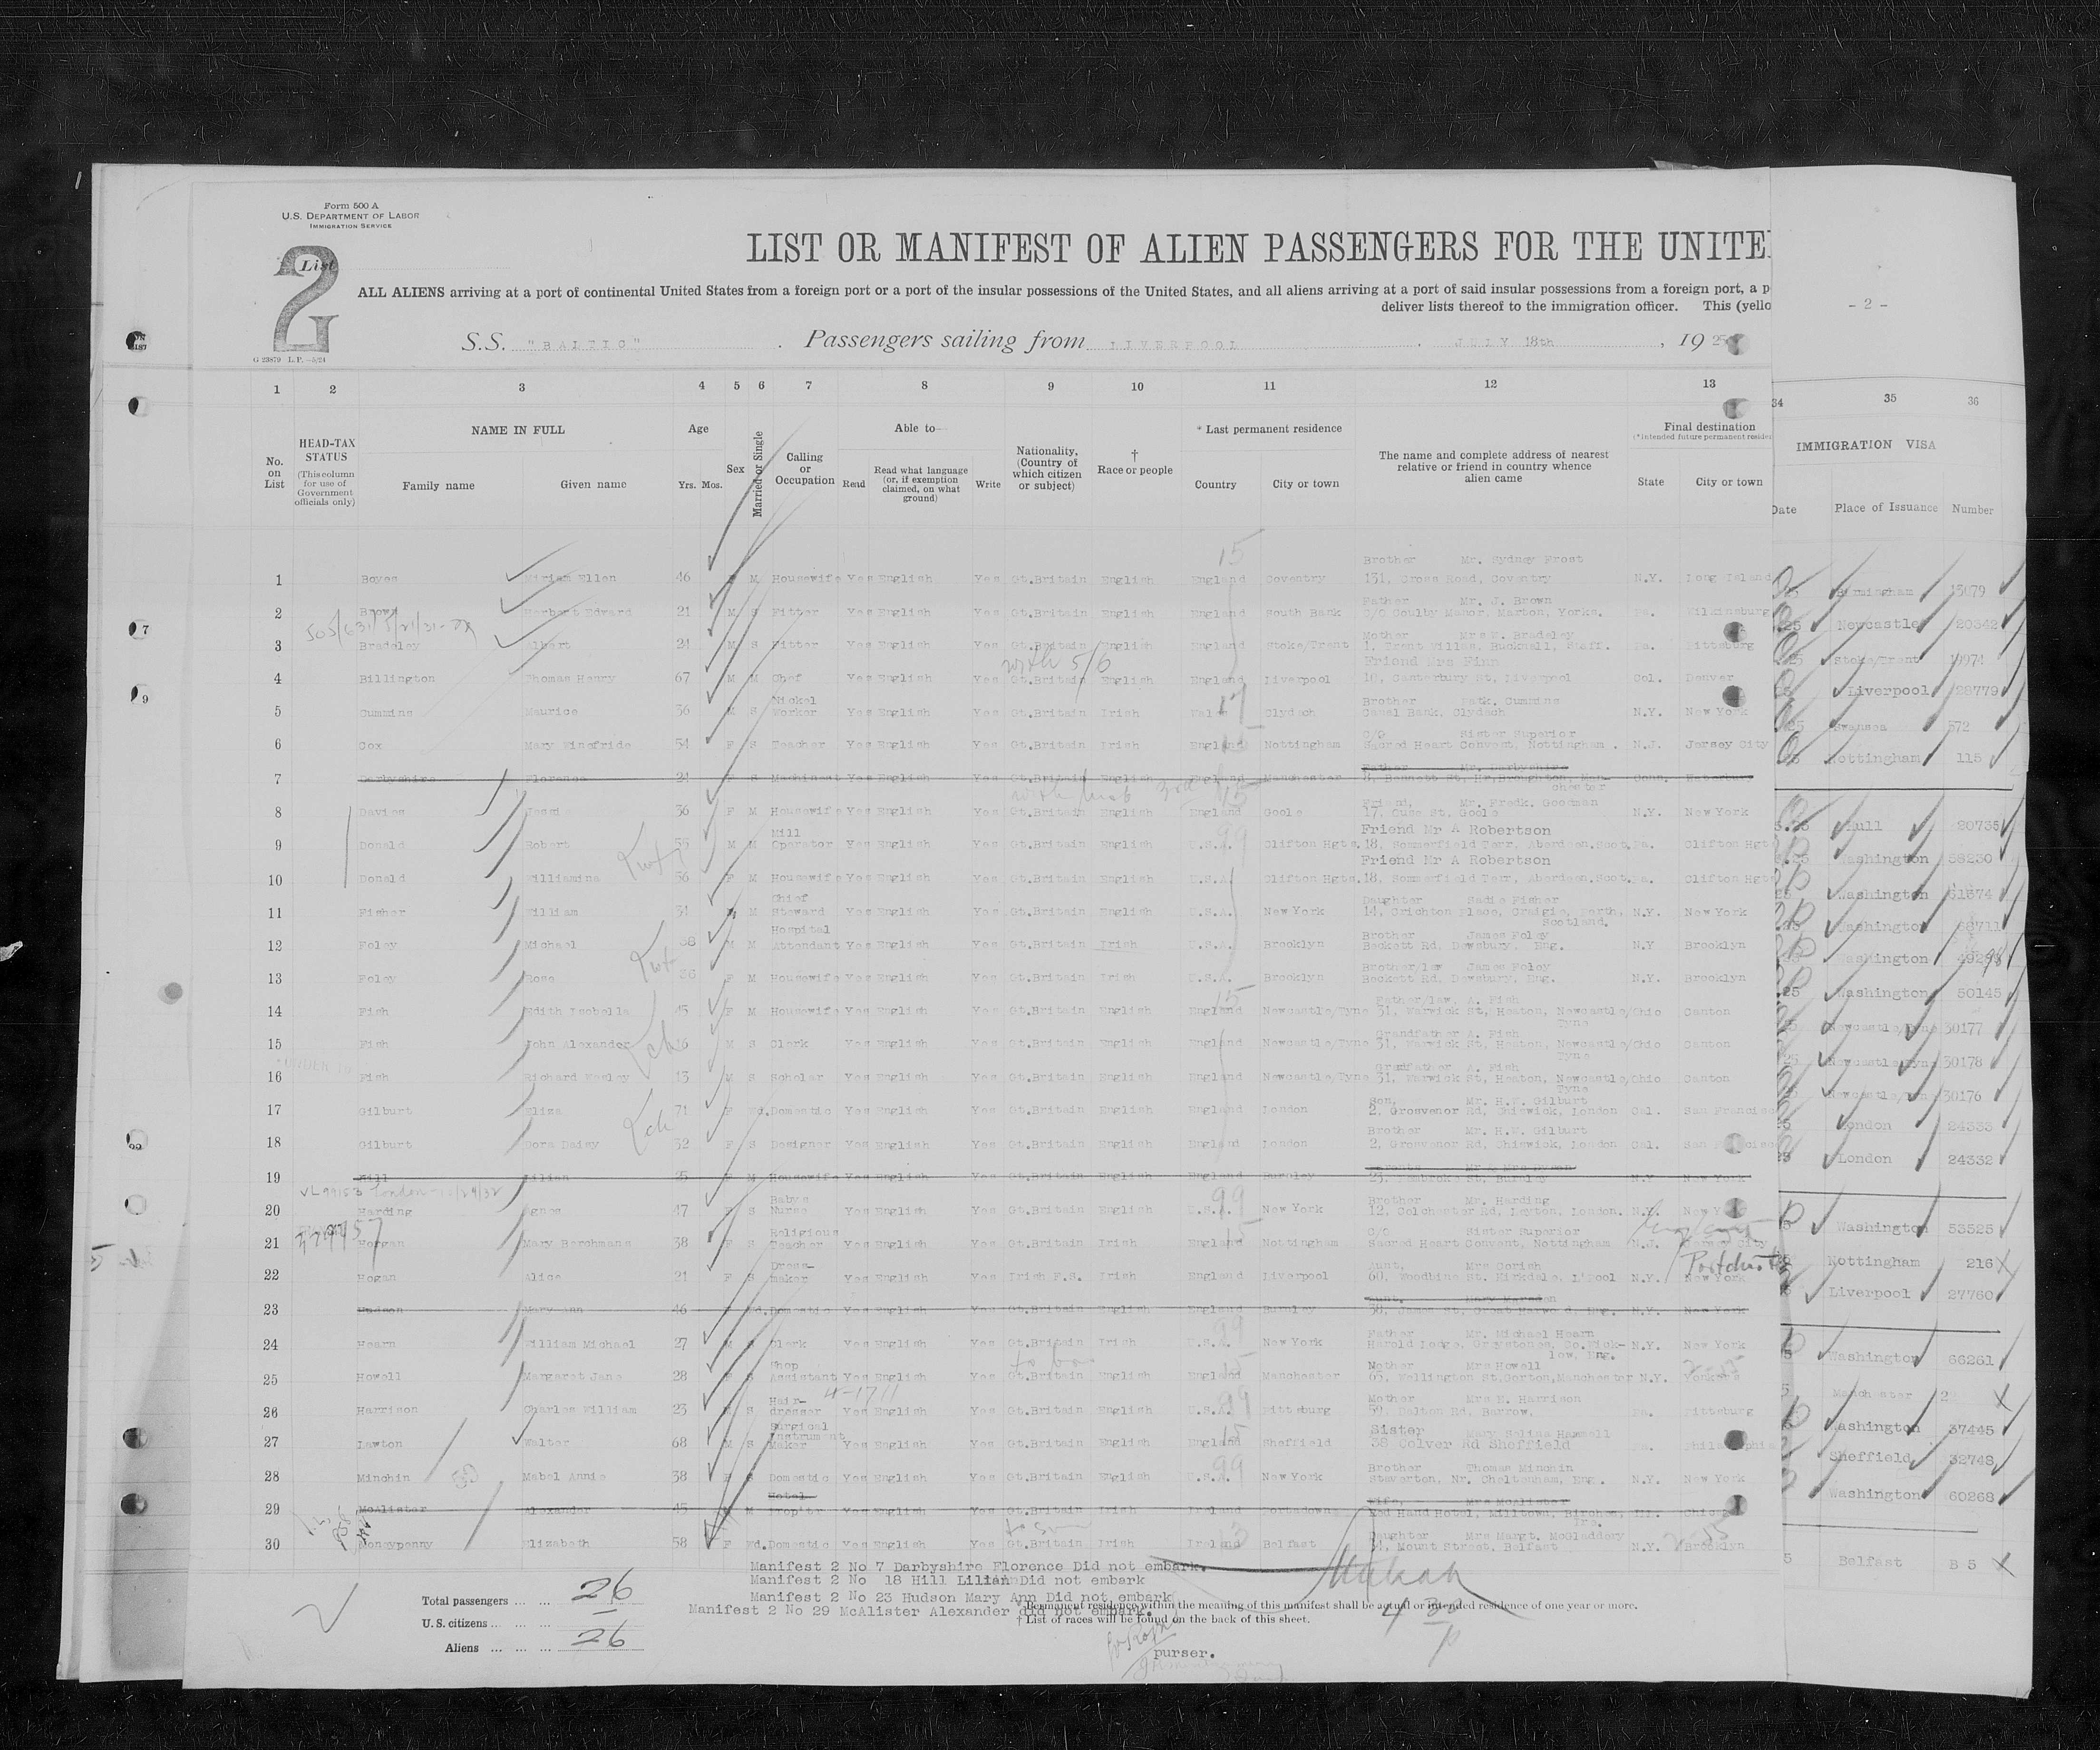 Form 500 A
U.S. DEPARTMENT OF LABOR
IMMIGRATION SERVICE
2
List
G 23879 L.P. -5/24
LIST OR MANIFEST OF ALIEN PASSENGERS FOR THE UNITE
ALL ALIENS arriving at a port of continental United States from a foreign port or a port of the insular possessions of the United States, and all aliens arriving at a port of said insular possessions from a foreign port, a p
deliver lists thereof to the immigration officer. This (yello
- 2 -
S.S. "BALTIC" . Passengers sailing from LIVERPOOL , JULY 18th , 19 25
1 2 3 4 5 6 7 8 9 10 11 12 13 34 35 36
No. on List
HEAD-TAX STATUS (This column for use of Government officials only)
NAME IN FULL
Family name Given name
Age
Yrs. Mos.
Sex
Married or Single
Calling or Occupation
Able to—
Read Read what language (or, if exemption claimed, on what ground) Write
Nationality, (Country of which citizen or subject)
† Race or people
* Last permanent residence
Country City or town
The name and complete address of nearest relative or friend in country whence alien came
Final destination
(*Intended future permanent residen
State City or town
IMMIGRATION VISA
Date Place of Issuance Number
15
Brother Mr. Sydney Frost
1 Boyes Miriam Ellen 46 F M Housewife Yes English Yes Gt.Britain English England Coventry 131, Cross Road, Coventry N.Y. Long Island 25 Birmingham 15079
Father Mr. J. Brown
2 Brown Herbert Edward 21 M S Fitter Yes English Yes Gt.Britain English England South Bank c/o Soulby Manor, Marton, Yorks. Pa. Wilkinsburg 25 Newcastle 20342
Mother Mrs W. Bradeley
3 Bradeley Albert 24 M S Fitter Yes English Yes Gt.Britain English England Stoke/Trent 1, Trent Villas, Bucknall, Staff. Pa. Pittsburg 25 Stoke/Trent 19974
Friend Mrs Finn
4 Billington Thomas Henry 67 M M Chef Yes English Yes Gt.Britain English England Liverpool 18, Canterbury St, Liverpool Col. Denver Liverpool 28779
Nickel Brother Patk. Cummins
5 Cummins Maurice 36 M S Worker Yes English Yes Gt.Britain Irish Wales Clydach Canal Bank, Clydach N.Y. New York 25 Swansea 572
c/o Sister Superior
6 Cox Mary Winefride 54 F S Teacher Yes English Yes Gt.Britain Irish England Nottingham Sacred Heart Convent, Nottingham . N.J. Jersey City Nottingham 115
Father Mr. Darbyshire
7 Darbyshire Florence 24 F S Machinest Yes English Yes Gt.Britain English England Manchester 8, Bennett St, Hr.Broughton, Man- Conn. Waterbury
chester
Friend, Mr. Fredk. Goodman
8 Davies Jessi 36 F M Housewife Yes English Yes Gt.Britain English England Goole 17, Ouse St, Goole N.Y. New York Hull 20735
Mill Friend Mr A Robertson
9 Donald Robert 55 M M Operator Yes English Yes Gt.Britain English U.S.A. Clifton Hgts. 18, Sommerfield Terr, Aberdeen,Scot. Pa. Clifton Hgts Washington 58230
Friend Mr A Robertson
10 Donald Williamina 56 F M Housewife Yes English Yes Gt.Britain English U.S.A. Clifton Hgts. 18, Sommerfield Terr, Aberdeen.Scot. Pa. Clifton Hgts Washington 61574
Chief Daughter Sadie Fisher
11 Fisher William 31 M M Steward Yes English Yes Gt.Britain English U.S.A. New York 14, Crichton Place, Craigie, Perth, N.Y. New York Washington 68711
Scotland.
Hospital Brother James Foley
12 Foley Michael 38 M M Attendant Yes English Yes Gt.Britain Irish U.S.A. Brooklyn Beckett Rd, Dewsbury, Eng. N.Y Brooklyn Washington
Brother/law James Foley
13 Foley Rose 36 F M Housewife Yes English Yes Gt.Britain Irish U.S.A. Brooklyn Beckett Rd, Dewsbury, Eng. N.Y. Brooklyn 25 Washington 50145
Father/law, A. Fish
14 Fish Edith Isobella 45 F M Housewife Yes English Yes Gt.Britain English England Newcastle/Tyne 31, Warwick St, Heaton, Newcastle/ Ohio Canton Newcastle/Tyne 30177
Tyne
Grandfather A. Fish
15 Fish John Alexander 16 M S Clerk Yes English Yes Gt.Britain English England Newcastle/Tyne 31, Warwick St, Heaton, Newcastle/ Ohio Canton 25 Newcastle/Tyne 30178
Tyne
Grandfather A. Fish
16 Fish Richard Wesley 13 M S Scholar Yes English Yes Gt.Britain English England Newcastle/Tyne 31, Warwick St, Heaton, Newcastle/ Ohio Canton Newcastle/Tyne 30176
Tyne
Son, Mr. H.W. Gilburt
17 Gilburt Eliza 71 F Wd. Domestic Yes English Yes Gt.Britain English England London 2, Grosvenor Rd, Chiswick, London Cal. San Francisco London 24333
Brother Mr. H.W. Gilburt
18 Gilburt Dora Daisy 32 F S Designer Yes English Yes Gt.Britain English England London 2, Grosvenor Rd, Chiswick, London Cal. San Francisco London 24332
19 Hill Lilian 25 F M Housewife Yes English Yes Gt.Britain English England Burnley 23, Pembroke St. Burnley N.Y New York
Baby's Brother Mr. Harding
20 Harding Agnes 47 F S Nurse Yes English Yes Gt.Britain English U.S.A. New York 12, Colchester Rd, Leyton, London. N.Y. New York Washington 53525
Religious c/o Sister Superior
21 Horgan Mary Berchmans 38 F S Teacher Yes English Yes Gt.Britain Irish England Nottingham Sacred Heart Convent, Nottingham N.J. Jersey City Nottingham 216
Dress- Aunt, Mrs Corish
22 Hogan Alice 21 F S maker Yes English Yes Irish F.S. Irish England Liverpool 60, Woodbine St. Kirkdale, L'pool N.Y. New York Liverpool 27760
Aunt. Mary Marsden
23 Hudson Mary Ann 46 F Wd. Domestic Yes English Yes Gt.Britain English England Burnley 38, James St, Great Harwood, Eng. N.Y. New York
Father Mr. Michael Hearn
24 Hearn William Michael 27 M S Clerk Yes English Yes Gt.Britain Irish U.S.A. New York Harold Lodge, Greystones, Co.Wick- N.Y. New York Washington 66261
low, Eng.
Shop Mother Mrs Howell
25 Howell Margaret Jane 28 F S Assistant Yes English Yes Gt.Britain English England Manchester 65, Wellington St.Gorton,Manchester N.Y. Yonkers Manchester
Hair- Mother Mrs E. Harrison
26 Harrison Charles William 23 M S dresser Yes English Yes Gt.Britain English U.S.A. Pittsburg 59, Dalton Rd, Barrow, Pa. Pittsburg Washington 37445
Surgical Instrument Sister Mary Selina Hammell
27 Lawton Walter 68 M S Maker Yes English Yes Gt.Britain English England Sheffield 38 Colver Rd Sheffield Pa. Philadelphia Sheffield 32748
Brother Thomas Minchin
28 Minchin Mabel Annie 38 F S Domestic Yes English Yes Gt.Britain English U.S.A. New York Staverton, Nr. Cheltenham, Eng. N.Y. New York Washington 60268
Hotel Wife, Mrs McAlister
29 McAlister Alexander 45 M M Prop'tor Yes English Yes Gt.Britain Irish Ireland Portadown Red Hand Hotel, Milltown, Birches, Ill. Chicago
Ire.
Daughter Mrs Margt. McGladdery
30 Moneypenny Elizabeth 58 F Wd. Domestic Yes English Yes Gt.Britain Irish Ireland Belfast 14, Mount Street, Belfast N.Y. Brooklyn 5 Belfast B 5
Manifest 2 No 7 Darbyshire Florence Did not embark.
Manifest 2 No 18 Hill Lilian Did not embark
Manifest 2 No 23 Hudson Mary Ann Did not embark
Manifest 2 No 29 McAlister Alexander did not embark.
Total passengers ... ... 26
U.S. citizens ... ... ...
Aliens ... ... ... 26
* Permanent residence within the meaning of this manifest shall be actual or intended residence of one year or more.
† List of races will be found on the back of this sheet.
purser.